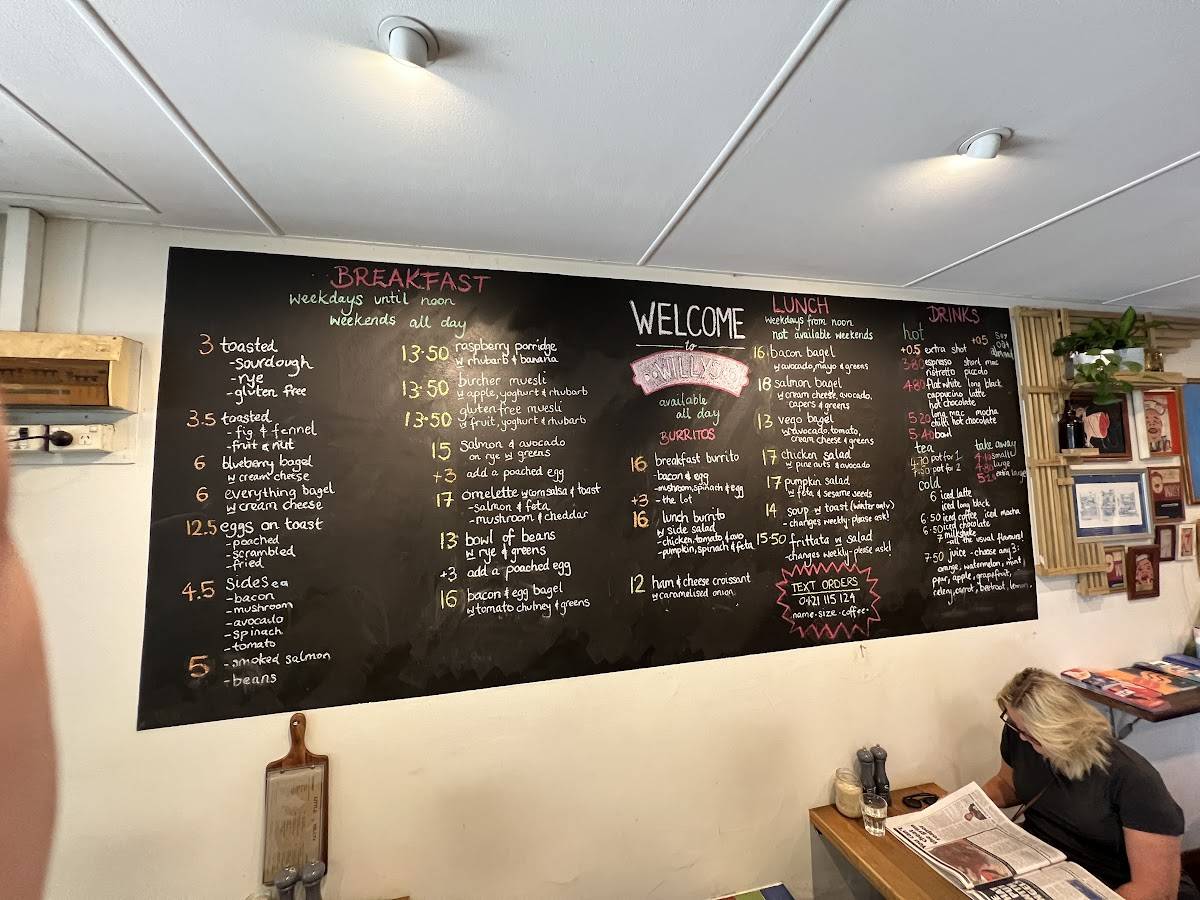 BREAKFAST
weekdays until noon
weekends all day
3 toasted
-sourdough
-rye
-gluten free
3.5 toasted
- fig & fennel
-fruit & nut
6 blueberry bagel
w cream cheese
6 everything bagel
w cream cheese
12.5 eggs on toast
-poached
-scrambled
-fried
4.5 sides ea
-bacon
-mushroom
-avocado
-spinach
-tomato
5 -smoked salmon
-beans
13.50 raspberry porridge
w rhubarb & banana
13.50 bircher muesli
w apple, yoghurt & rhubarb
13.50 gluten free muesli
w fruit, yoghurt & rhubarb
15 salmon & avocado
on rye w greens
+3 add a poached egg
17 omelette w corn salsa & toast
-salmon & feta
-mushroom & cheddar
13 bowl of beans
w rye & greens
+3 add a poached egg
16 bacon & egg bagel
w tomato chutney & greens
WELCOME
to
WILLYS
available
all day
BURRITOS
16 breakfast burrito
-bacon & egg
-mushroom, spinach & egg
+3 -the lot
16 lunch burrito
w side salad
-chicken, tomato & avo
-pumpkin, spinach & feta
12 ham & cheese croissant
w caramelised onion
LUNCH
weekdays from noon
not available weekends
16 bacon bagel
w avocado, mayo & greens
18 salmon bagel
w cream cheese, avocado,
capers & greens
13 vego bagel
w avocado, tomato,
cream cheese & greens
17 chicken salad
w pine nuts & avocado
17 pumpkin salad
w feta & sesame seeds
14 soup w toast (winter only)
-changes weekly-please ask!
15.50 frittata w salad
-changes weekly-please ask!
TEXT ORDERS
0421 115 124
name-size-coffee
DRINKS
hot
+0.5 extra shot +0.5 soy
oat
almond
3.80 espresso short mac
ristretto piccolo
4.80 flat white long black
cappucino latte
hot chocolate
5.20 long mac mocha
chilli hot chocolate
5.40 bowl
tea
pot for 1
pot for 2
take away
small
large
5.20 extra large
cold
6 iced latte
iced long black
6.50 iced coffee iced mocha
6.50 iced chocolate
7 milkshake
-all the usual flavours!
7.50 juice - choose any 3:
orange, watermelon, mint,
pear, apple, grapefruit,
celery, carrot, beetroot, lemon.